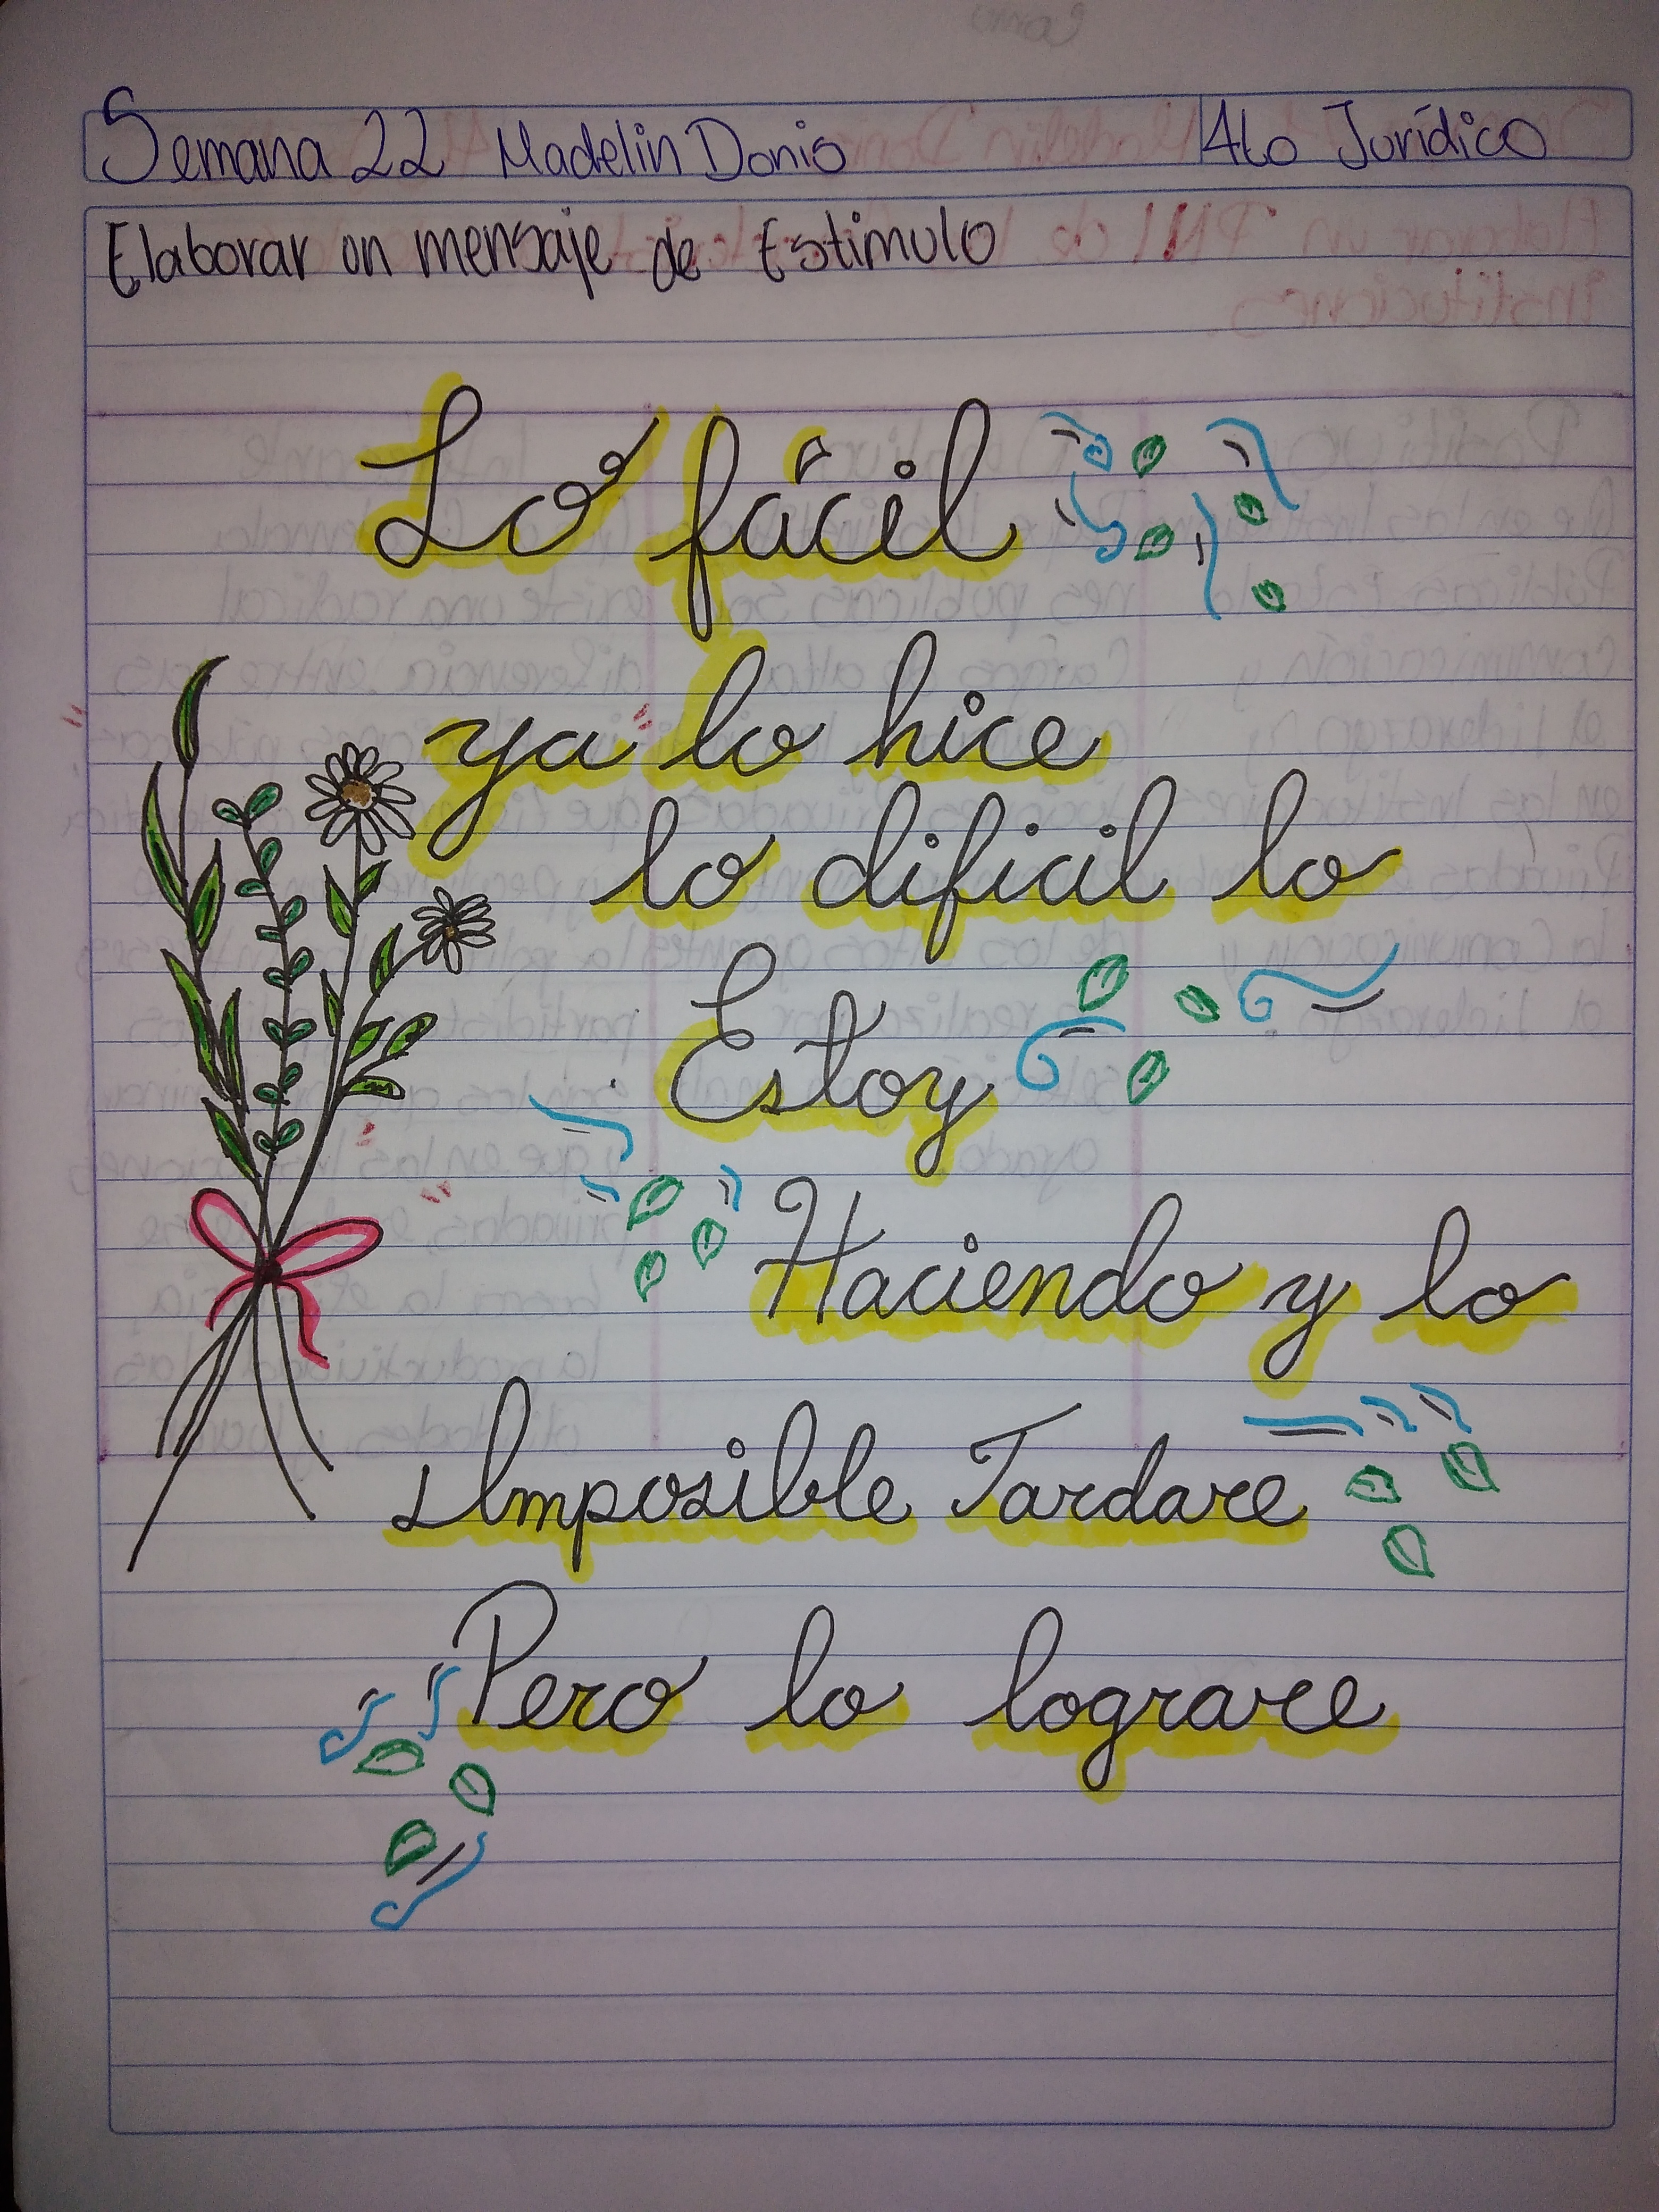 Semana 22 Madelin Donis 4to Jurídico
Elaborar un mensaje de Estimulo
Lo fácil
ya lo hice
lo dificil lo
Estoy
Haciendo y lo
Imposible Tardare
Pero lo lograre